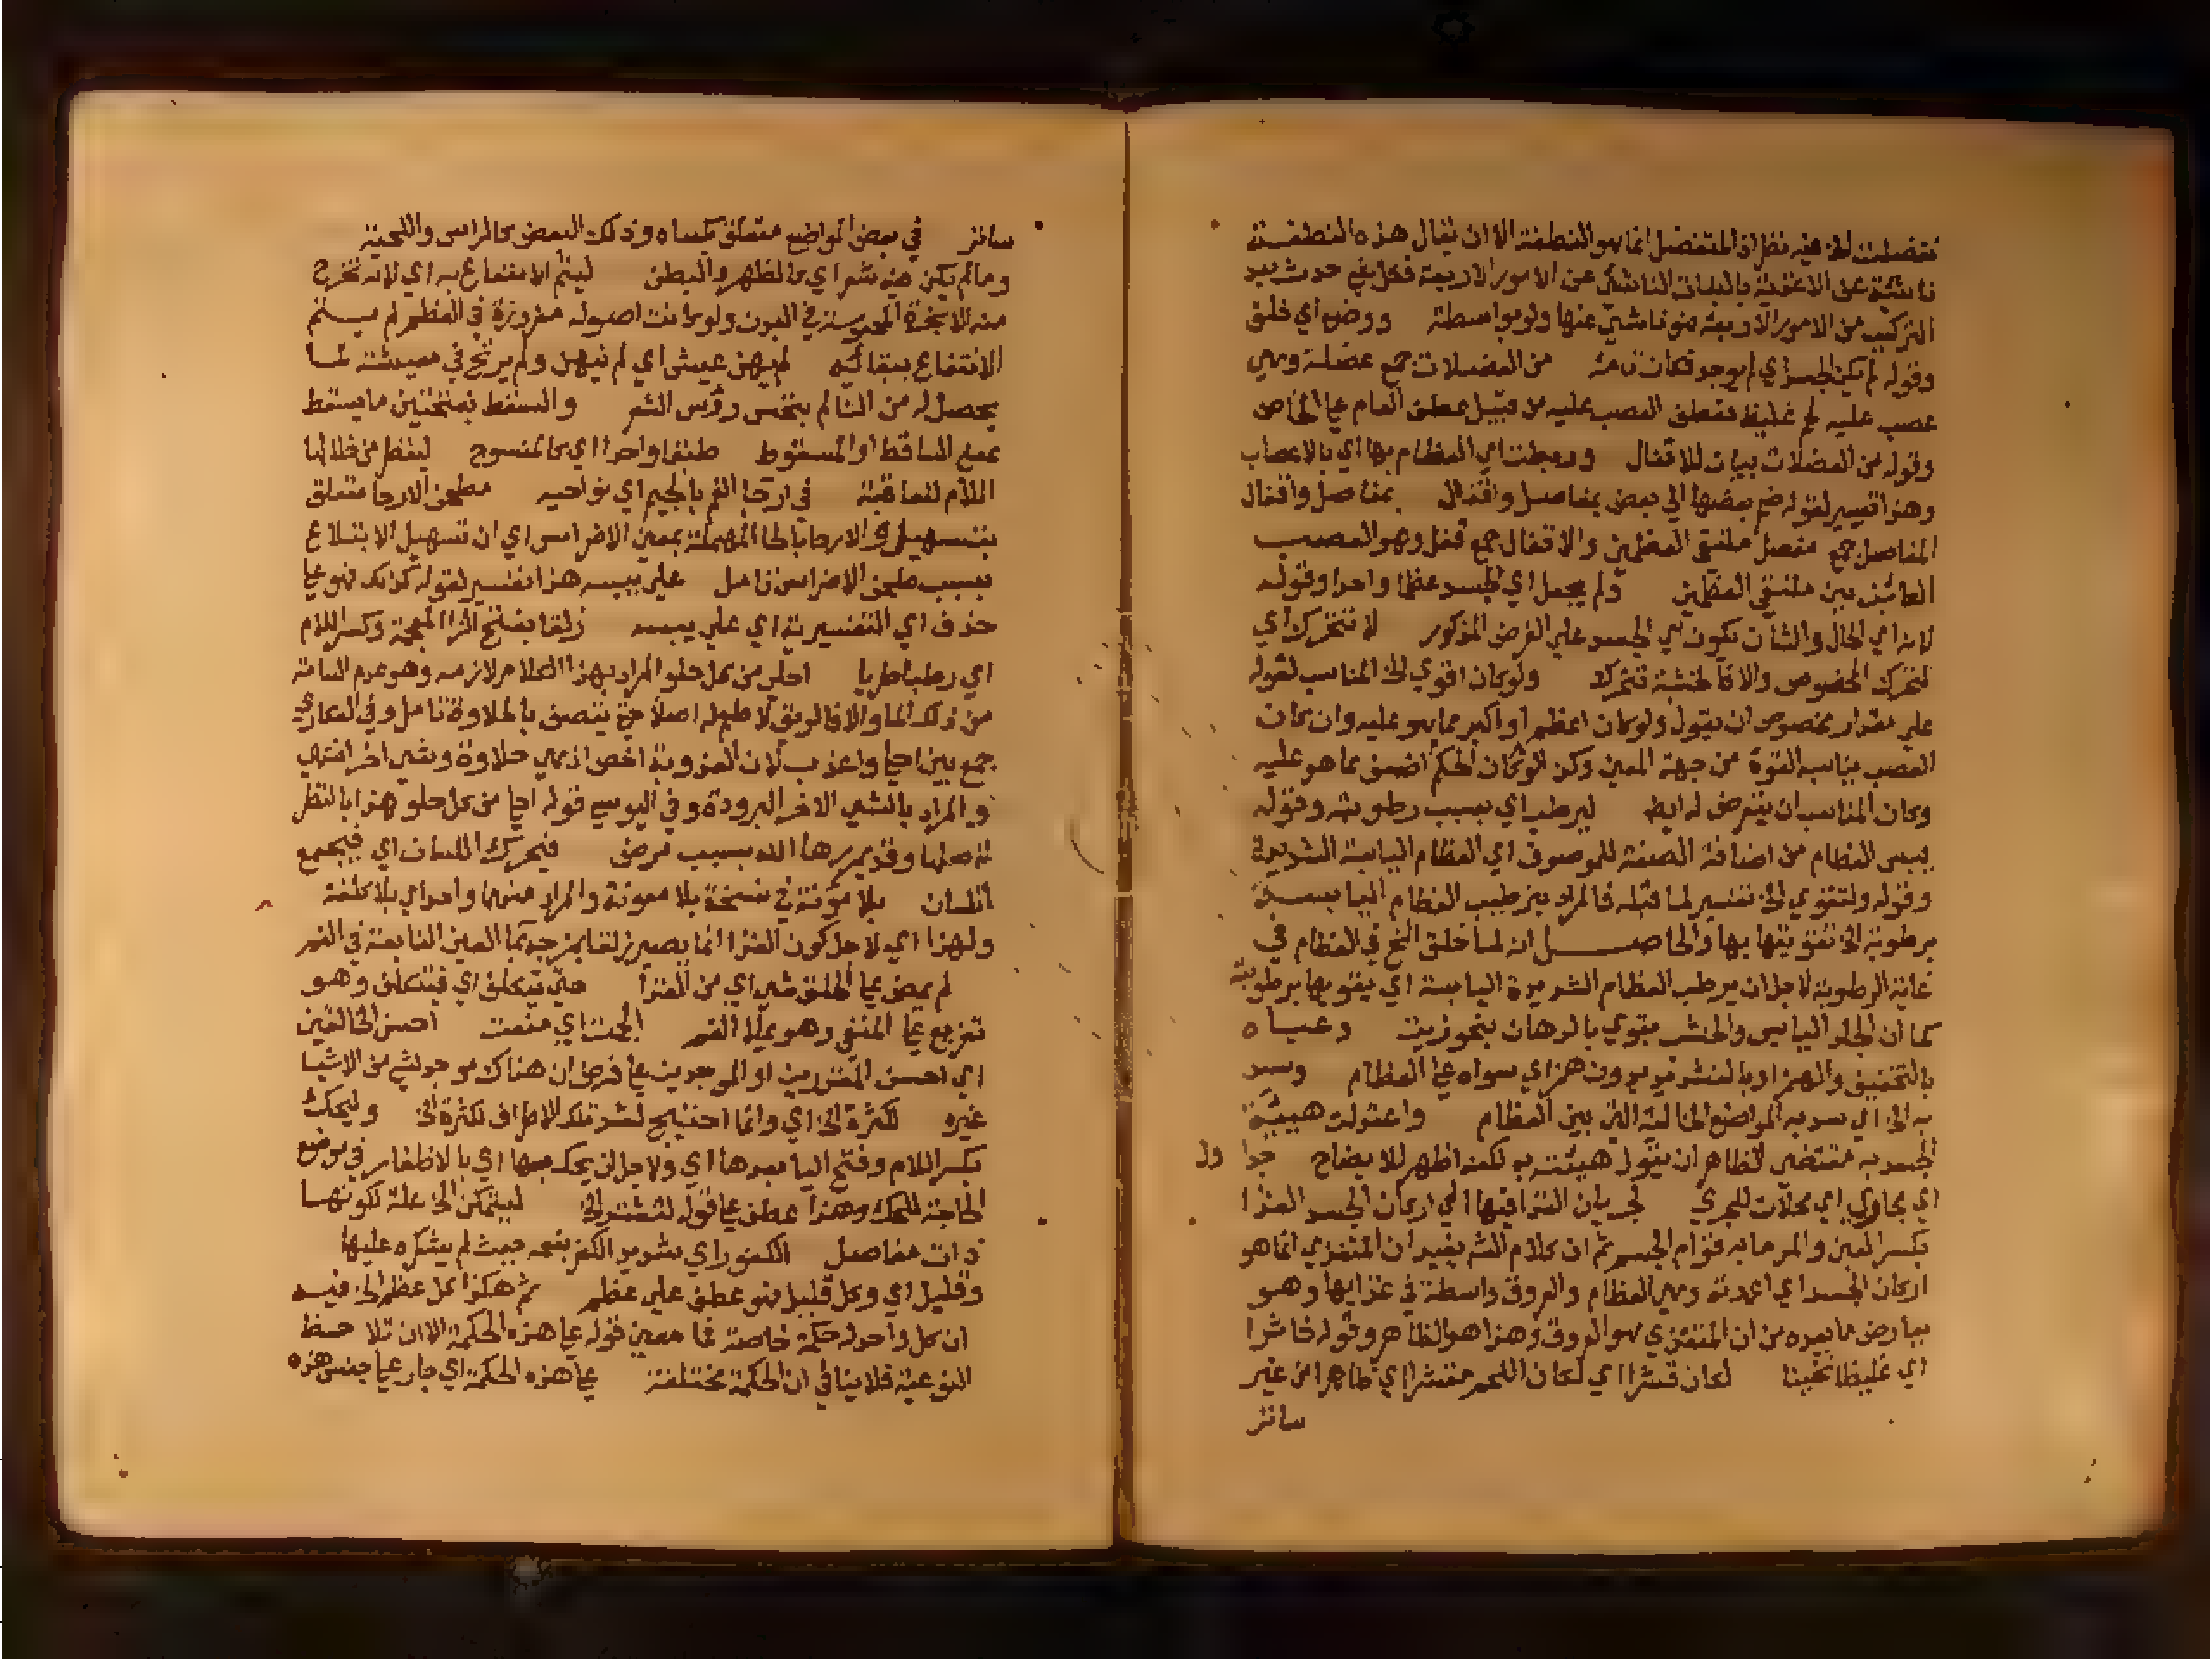 تفضلت الخ فيه نظر اذ المتفضل انما هو النطفة الا ان يقال هذه النطفة
ناشئة عن الاغذية بالنبات الناشئ عن الامور الاربعة فكل شئ حدث بعد
التركيب من الامور الاربعة فهو ناشئ عنها ولو بواسطة ووضع اي خلق
وقوله لم يكن الجسد اي لم يوجد فكان تامة من العضلات جمع عضلة وهي
عصب عليه لحم غليظ فعطف العصب عليه من قبيل عطف العام على الخاص
وقوله من العضلات بيان للاقفال وربطت اي العظام بها اي بالاعصاب
وهذا تفسير لقوله ضم بعضها الي بعض بمفاصل واقفال بمفاصل واقفال
المفاصل جمع مفصل ملتقى العظمين والاقفال جمع قفل وهو العصب
الكائن بين ملتقي العظمين ولم يجعل اي الجسد عظما واحدا وقوله
لانه اي الحال والشان يكون اي الجسد علي الفرض المذكور لا تتحرك اي
التحرك المخصوص والا فالخشبة تتحرك ولو كان اقوي الخ المناسب لقوله
علي مقدار مخصوص ان يقول ولو كان اعظم او اكبر مما هو عليه وان كان
العصب يناسب القوة من جهة المعنى وكذا لو كان الحكم اضعف مما هو عليه
وكان المناسب ان يتعرض له ايضا ليرطب اي بسبب رطوبته وقوله
يبس العظام من اضافة الصفة للموصوف اي العظام اليابسة الشديدة
وقوله ولتقوي الخ تفسير لما قبله فالمراد بترطيب العظام اليابسة
برطوبة الخ تقويتها بها والحاصل انه لما خلق المخ في العظام في
غاية الرطوبة لاجل ان يرطب العظام الشديدة اليابسة اي يقويها برطوبته
كما ان الجلد اليابس والخشب يقوي بالدهان بنحو زيت وعباه
بالتخفيف والهمز او بالتشديد بدون همز اي سواه على العظام وسد
به الخ اي سد به المواضع الخالية التي بين العظام واعتدلت هيئة
الجسد به مقتضي الظاهر ان يقول هيئته به لكنه اظهر للايضاح جداول
اي مجاري اي محلات للجري لجريان الغذا فيها الي اركان الجسد الغذا
بكسر الغين والمد ما به قوام الجسم ثم ان كلام الشه يفيد ان المتغذي انما هو
اركان الجسد اي اعمدته وهي العظام والعروق واسطة في غذايها وهو
يعارض ما بعده من ان المتغذي هو العروق وهذا هو الظاهر وقوله خاثرا
اي غليظا ثخينا لكان قشرا اي لكان اللحم منتشرا اي ظاهرا من غير
ساتر
ساتر في بعض المواضع متعلق بكساه وذلك البعض كالراس واللحية
وما لم يكن فيه شعر اي كالظهر والبطن ليتم الانتفاع به اي لانه تخرج
منه الابخرة المحبوسة في البدن ولو كانت اصوله مغروزة في العظم لم يتم
الانتفاع ببقائه لم يهن عيش اي لم يتهن ولم يرتح في معيشته لما
يحصل له من التالم بنخس رؤس الشعر والسقط بفتحتين ما يسقط
بمعنى الساقط او المسقوط طبقا واحدا اي كالمنسوج لينظر من خلالها
اللام للعاقبة في ارجا الفم بالجيم اي نواحيه مطحن الارحا متعلق
بتسهيل والارحا بالحا المهملة بمعنى الاضراس اي ان تسهيل الابتلاع
بسبب طحن الاضراس تامل علي يبسه هذا تفسير لقوله كذلك فهو على
حذف اي التفسيرية اي علي يبسه زلقا بفتح الزا المعجمة وكسر اللام
اي رطبا طريا احلى من كل حلو المراد بهذا الكلام لازمه وهو عدم السامة
من ذلك الما والا فالريق لا طعم له اصلا حتى يتصف بالحلاوة تامل وفي السكتاني
جمع بين احلى واعذب لان العذوبة اخص اذ هي حلاوة وشي اخر انتهي
والمراد بالشي الاخر البرودة وفي اليوسي قوله احلى من كل حلو هذا بالنظر
لاصلها وقد يمررها الله بسبب مرض فيحرك اللسان اي فيجمع
اللسان بلا مؤنة في نسخة بلا معونة والمراد منهما واحد اي بلا كلفة
ولهذا اي لاجل كون الغذا انما يصير زلقا بمزجه بما العين النابعة في الفم
لم يمض على الحلق شي اي من الغذا حتى يتكلف اي فيتكلف وهو
تفريع على المنفي وهو يملا الفم الجمت اي منعت احسن الخالقين
اي احسن المقدرين او الموجدين على فرض ان هناك موجد لشي من الاشيا
غيره لكثرة الخ اي وانما احتيج لشد تلك الاطراف لكثرة الخ وليحك
بكسر اللام وفتح اليا بعدها اي ولاجل ان يحك بها اي بالاظفار في موضع
الحاجة للحك وهذا عطف على قوله لتشتد الخ ليتمكن الخ علة لكونها
ذات مفاصل الكفور اي شديد الكفر بنعمه حيث لم يشكره عليها
وقليل اي وكل قليل فهو عطف علي عظم ثم هكذا كل عظم الخ فيه
ان كل واحد له حكمة خاصة فما معني قوله على هذه الحكمة الا ان تلاحظ
النوعية فلا ينافي ان الحكمة مختلفة على هذه الحكمة اي جار على جنس هذه